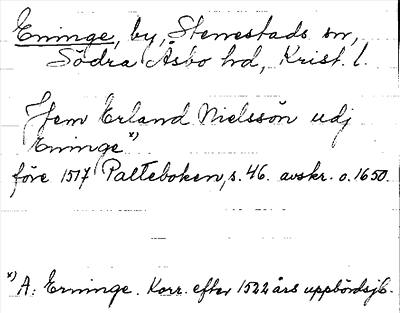 Eninge, by, Stenestads sn,
Södra Åsbo hd, Krist. l.
Jem Erland Nielssön udj
Eninge x)
före 1517 Palteboken, s. 46. avskr. o. 1650.
x) A: Erninge. Korr. efter 1522 års uppbördsjb.